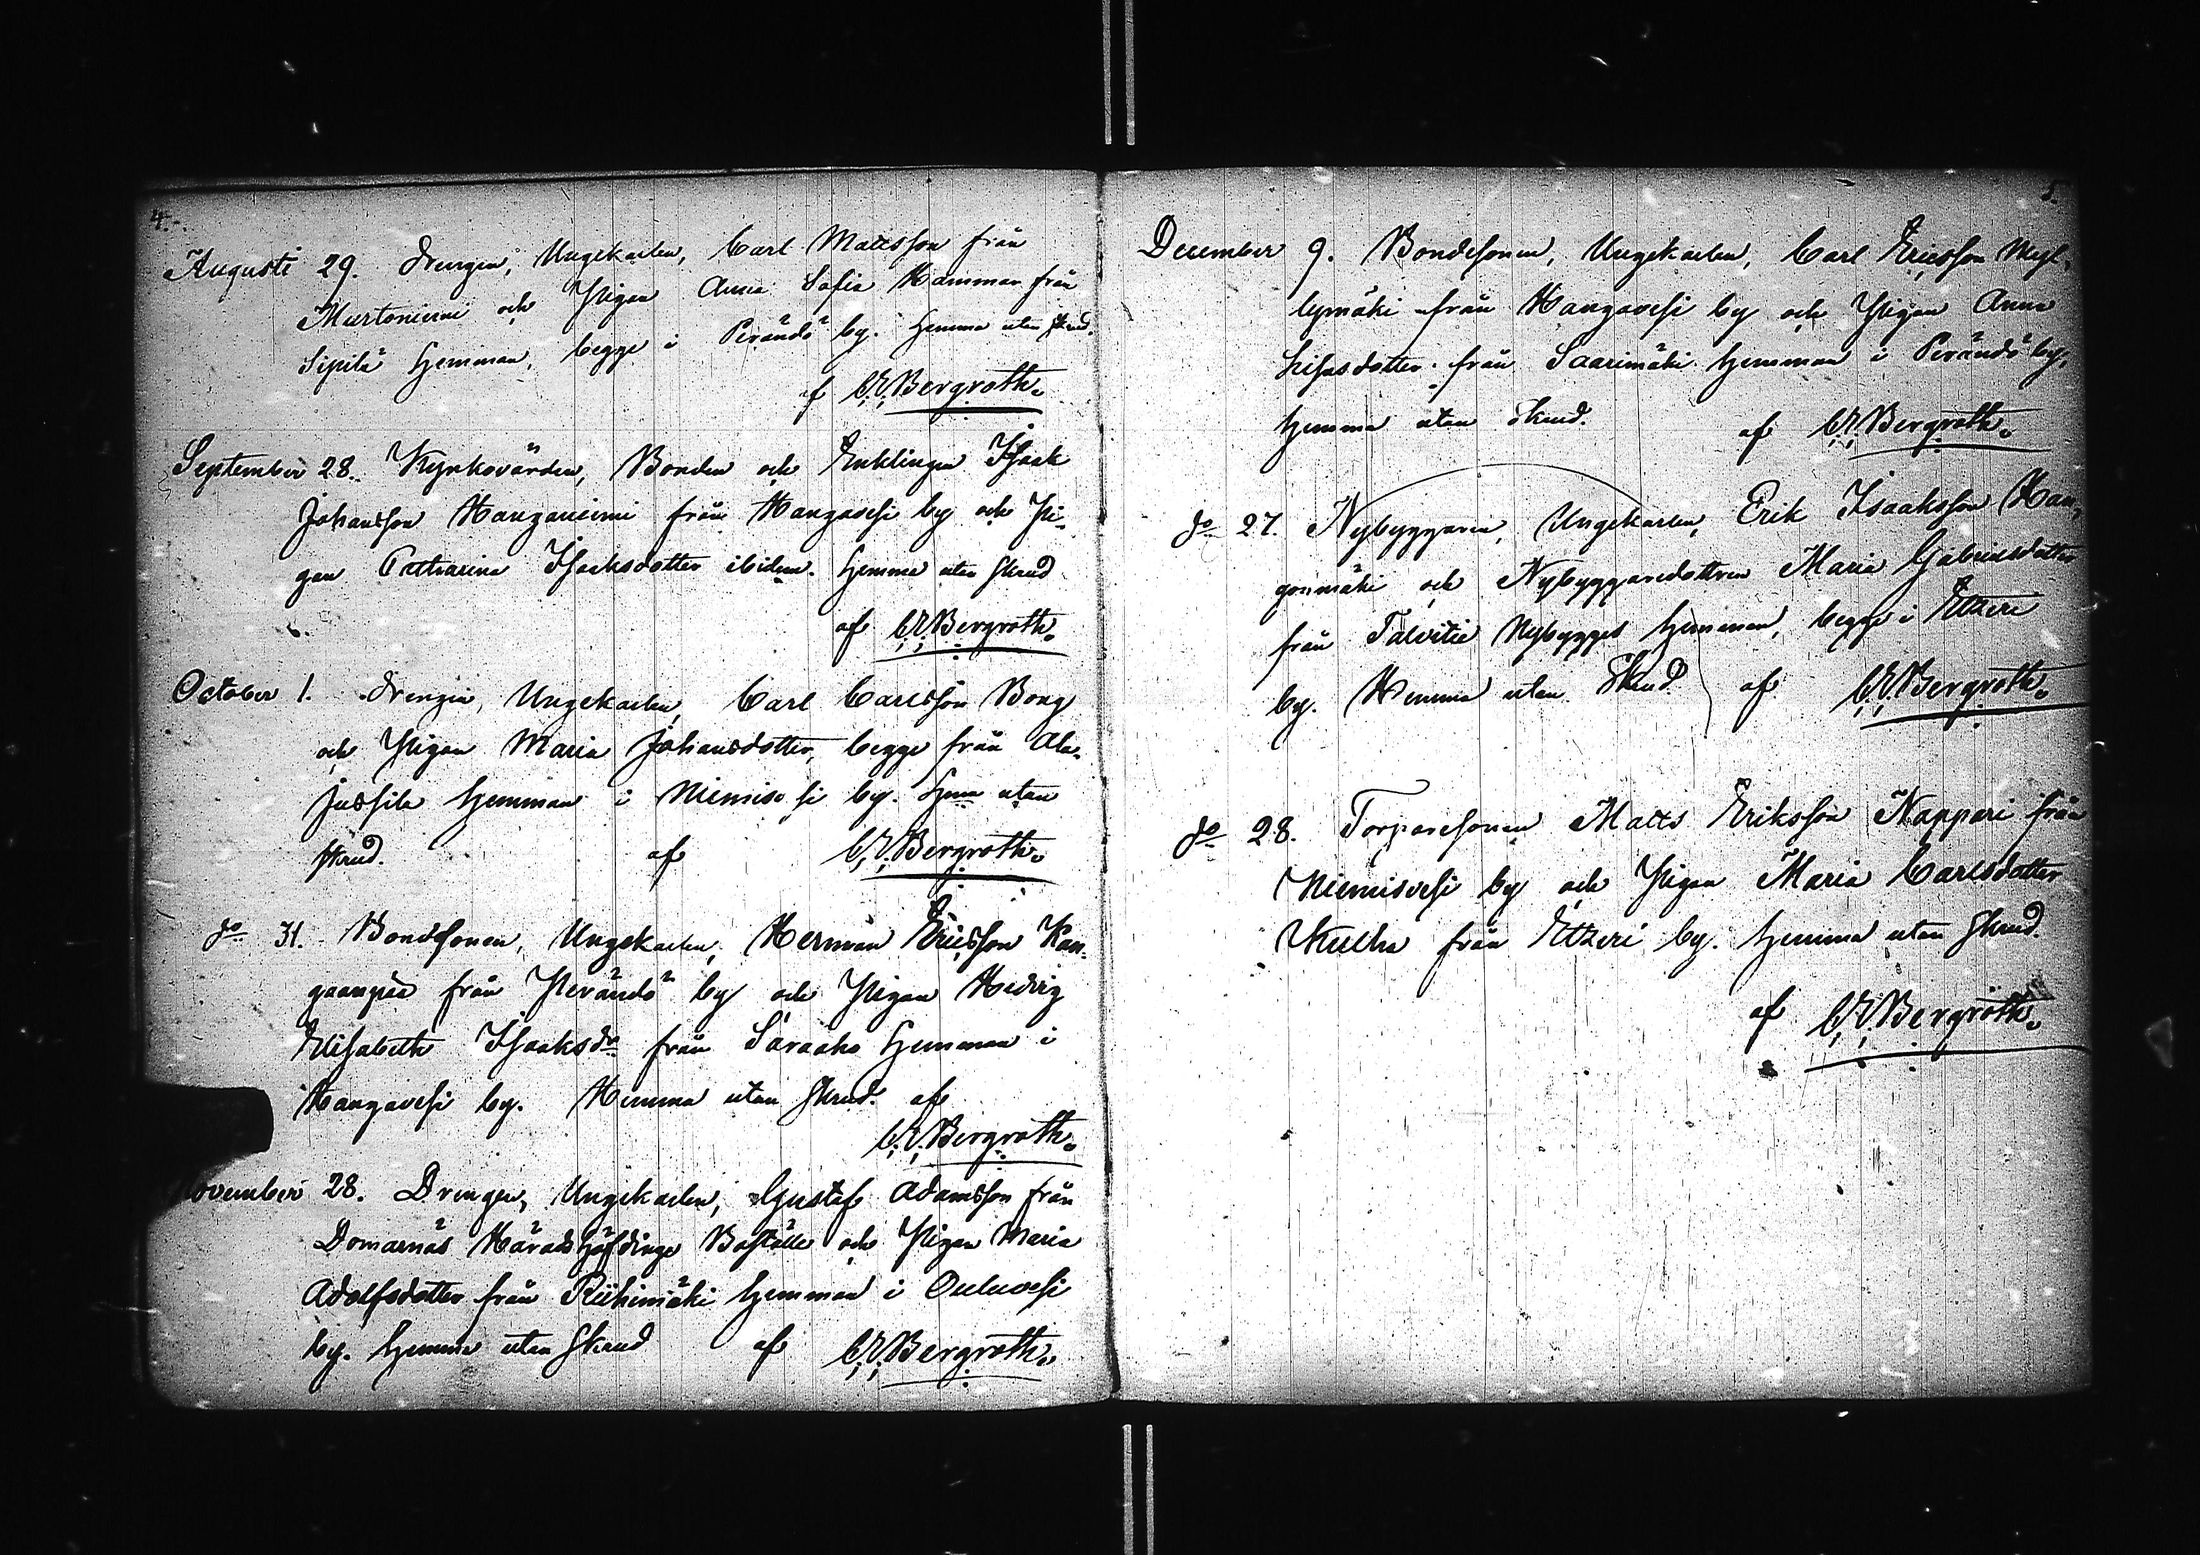 4.
Augusti 29. Drengen, Ungekarlen, Carl Mattsson från
Murtoniemi och Pigan Anna Sofia Hamman från
Sipilä Hemman, begge i Perändö by. Hemma utan skrud.
af C. E. Bergroth.
September 28. Kyrkovärden, Bonden och Enklingen Isaak
Johansson Hanganiemi från Hangavesi by och Pi-
gan Catharina Isaksdotter ibidem. Hemma utan skrud
af C. E. Bergroth.
October 1. Drengen, Ungekarlen, Carl Carlsson Bong
och Pigan Maria Johansdotter, begge från Ala-
jussila Hemman i Niemisvesi by. Hema utan
skrud. af C. E. Bergroth.
do 31. Bondsonen, Ungekarlen, Herman Ericsson Kan-
gaanpää från Perändö by och Pigan Hedvig
Elisabeth Isaksdr från Saraaho Hemman i
Hangavesi by. Hemma utan skrud. af
C. E. Bergroth.
November 28. Drengen, Ungekarlen, Gustaf Adamsson från
Domarnäs Häradshöfdinge Boställe och Pigan Maria
Adolfsdotter från Riihimäki Hemman i Ouluvesi
by. Hemma utan skrud af C. E. Bergroth.
5.
December 9. Bondesonen, Ungekarlen, Carl Ericsson Myl-
lymäki från Hangavesi by och Pigan Anna
Lisasdotter från Saarimäki Hemman i Perändö by,
Hemma utan skrud. af C. E. Bergroth.
do 27. Nybyggaren, Ungekarlen, Erik Isaaksson Han-
gonmäki och Nybyggaredottren Maria Gabrielsdotter
från Talvitie Nybygges Hemman, begge i Etzeri
by. Hemma utan skrud. af C. E. Bergroth.
do 28. Torparesonen Matts Eriksson Nappari från
Niemisvesi by och Pigan Maria Carlsdotter
Kulha från Etzeri by. Hemma utan skrud.
af C. E. Bergroth.